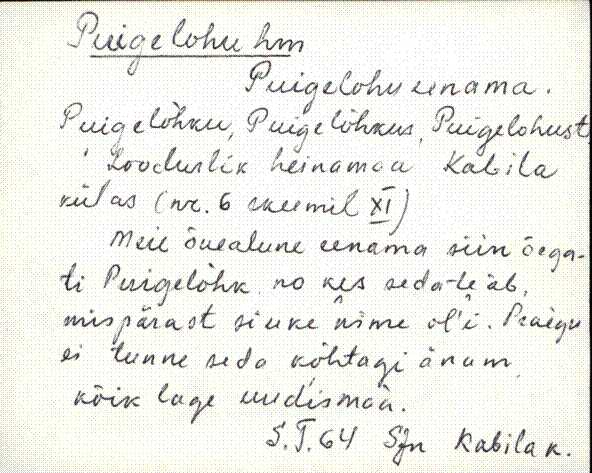 Puigelohu hm
Puigelohu eenama.
Puigelõhku, Puigelõhkus, Puigelohust
Looduslik heinamaa Kabila
külas (nr. 6 skeemil XI)
Meie õuealune eenama siin õega-
ti Puigelõhk no kes seda teab,
mispärast siuke nime ol'i. Praegu
ei tunne seda kõhtagi änam
kõik lage uudismaa.
S.T.64 Sjn Kabila k.